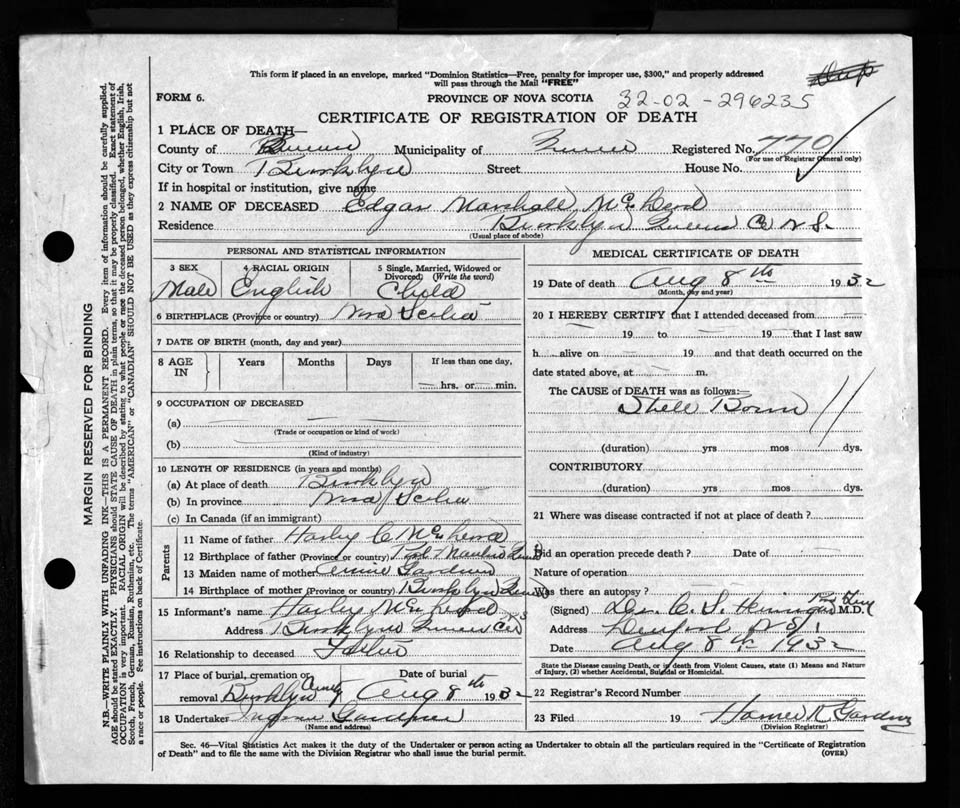 This form if placed in an envelope, marked "Dominion Statistics—Free, penalty for improper use, $300," and properly addressed
will pass through the Mail "FREE"
FORM 6.
PROVINCE OF NOVA SCOTIA 32-02-296235
CERTIFICATE OF REGISTRATION OF DEATH
1 PLACE OF DEATH—
County of Queens Municipality of Queens Registered No. 770
(For use of Registrar General only)
City or Town Brooklyn Street House No.
If in hospital or institution, give name
2 NAME OF DECEASED Edgar Marshall McLeod
Residence Brooklyn Queens Co N.S.
(Usual place of abode)
PERSONAL AND STATISTICAL INFORMATION
3 SEX 4 RACIAL ORIGIN 5 Single, Married, Widowed or Divorced (Write the word)
Male English Child
6 BIRTHPLACE (Province or country) Nova Scotia
7 DATE OF BIRTH (month, day and year)
8 AGE IN Years Months Days If less than one day,
hrs. or min.
9 OCCUPATION OF DECEASED
(a)
(Trade or occupation or kind of work)
(b)
(Kind of industry)
10 LENGTH OF RESIDENCE (in years and months)
(a) At place of death Brooklyn
(b) In province Nova Scotia
(c) In Canada (if an immigrant)
Parents
11 Name of father Harley C McLeod
12 Birthplace of father (Province or country)
13 Maiden name of mother
14 Birthplace of mother (Province or country) Brooklyn Queens
15 Informant's name Harley McLeod
Address Brooklyn Queens Co
16 Relationship to deceased Father
17 Place of burial, cremation or removal Date of burial
Brooklyn Cemty Aug 8th 1932
18 Undertaker
(Name and address)
MEDICAL CERTIFICATE OF DEATH
19 Date of death Aug 8th 1932
(Month, day and year)
20 I HEREBY CERTIFY that I attended deceased from
19 to 19 that I last saw
h alive on 19 and that death occurred on the
date stated above, at m.
The CAUSE of DEATH was as follows:—
Still Born
(duration) yrs mos dys.
CONTRIBUTORY
(duration) yrs mos dys.
21 Where was disease contracted if not at place of death?
Did an operation precede death? Date of
Nature of operation
Was there an autopsy?
(Signed) Dr. C. S. M.D.
Address N S
Date Aug 8th 1932
State the Disease causing Death, or if death from Violent Causes, state (1) Means and Nature
of Injury, (2) whether Accidental, Suicidal or Homicidal.
22 Registrar's Record Number
23 Filed 19 Homer R Gardner
(Division Registrar)
Sec. 46—Vital Statistics Act makes it the duty of the Undertaker or person acting as Undertaker to obtain all the particulars required in the "Certificate of Registration
of Death" and to file the same with the Division Registrar who shall issue the burial permit. (OVER)
MARGIN RESERVED FOR BINDING
N.B.—WRITE PLAINLY WITH UNFADING INK—THIS IS A PERMANENT RECORD. Every item of information should be carefully supplied.
AGE should be stated EXACTLY. PHYSICIANS should STATE CAUSE OF DEATH in plain terms, so that it may be properly classified. Exact statement of
OCCUPATION is very important. RACIAL ORIGIN will be described by stating to what people or race the deceased person belonged, whether English, Irish,
Scotch, French, German, Russian, Ruthenian, etc. The terms "AMERICAN" or "CANADIAN" SHOULD NOT BE USED as they express citizenship but not
a race or people. See instructions on back of Certificate.